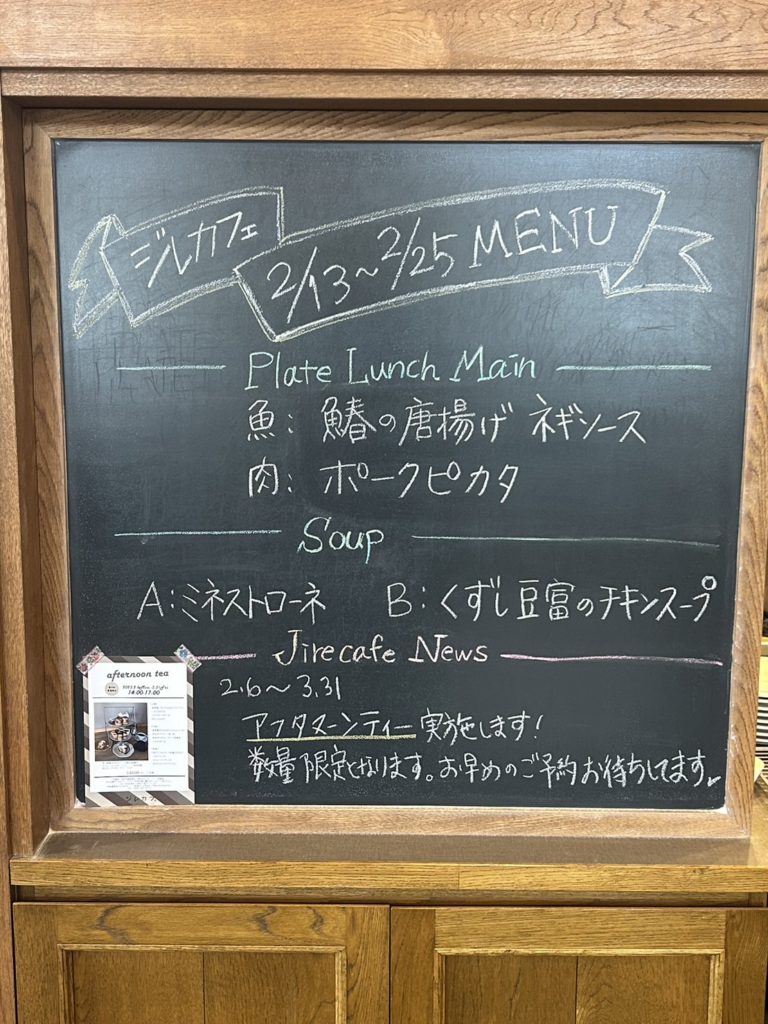 ジレカフェ 2/13~2/25 MENU
Plate Lunch Main
魚: 鰆の唐揚げ ネギソース
肉: ポークピカタ
Soup
A:ミネストローネ B:くずし豆富のチキンスープ
Jirecafe News
2.6~3.31
アフタヌーンティー実施します!
数量限定となります。お早めのご予約お待ちしてます
afternoon tea
14:00-17:00
ジレカフェ